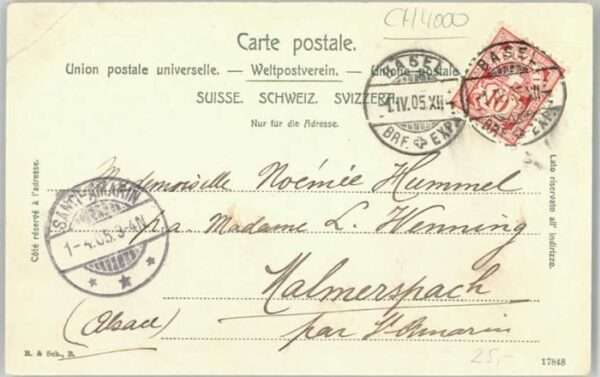 CH4000
Carte postale.
Union postale universelle. — Weltpostverein. — Unione postale
SUISSE. SCHWEIZ. SVIZZERA.
Nur für die Adresse.
BASEL
1.IV.05.XII
BRF. EXP.
BASEL
10
BRF. EXP.
Côté réservé à l'adresse.
Lato riservato all' indirizzo.
SANCT-AMARIN
1-4.05.3-4N
Mademoiselle Noémiée Hummel
p.a. Madame L. Wenning
Malmerspach
(Alsace) par St. Amarin
R. & Sch., B.
25,-
17848